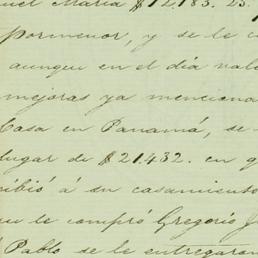 uel Maria $12.183.23.
pormenor, y se le c
aunque en el dia val
mejoras ya menciona
Casa en Panamá, se
lugar de $21.432. en q
ibió á su casamiento
ue le compró Gregorio J
Pablo se le entregaron